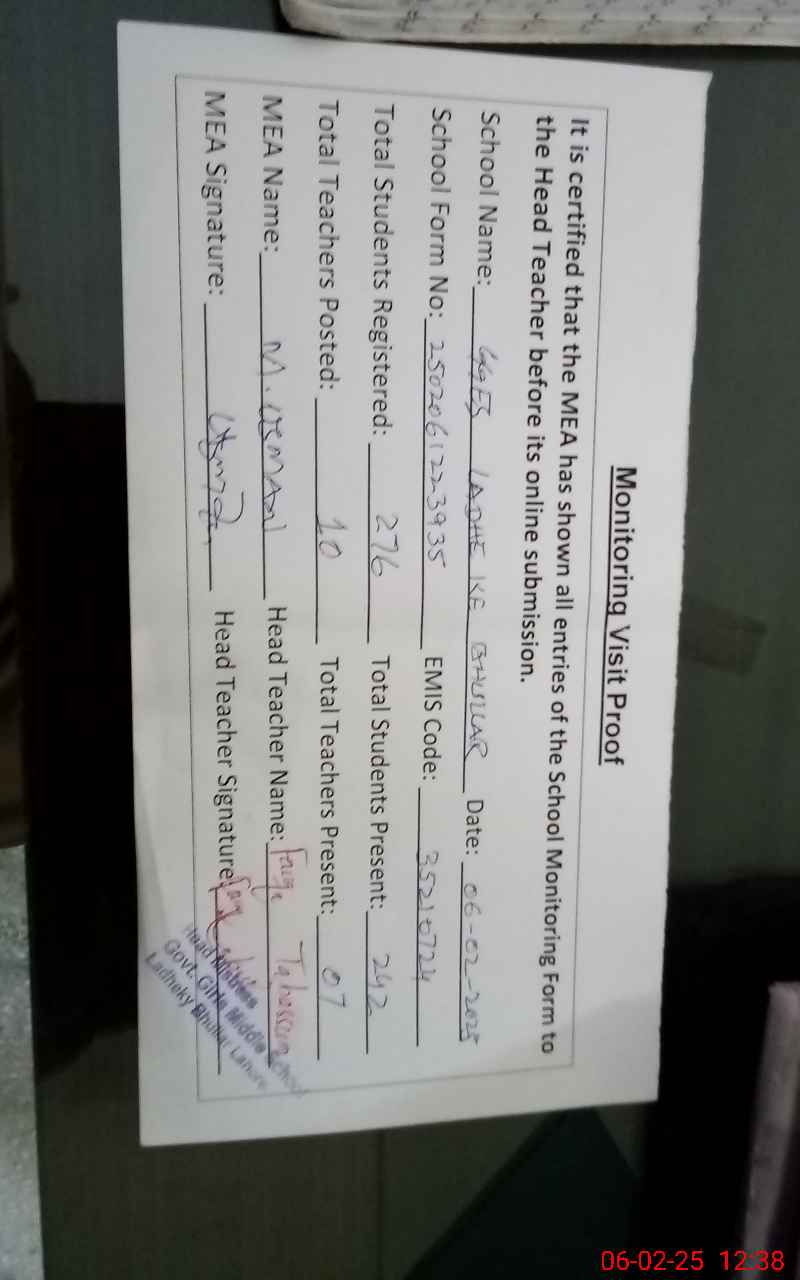 Monitoring Visit Proof
It is certified that the MEA has shown all entries of the School Monitoring Form to
the Head Teacher before its online submission.
School Name: GGES LADHE KE BHULLAR Date: 06-02-2025
School Form No: 2502061223935 EMIS Code: 35210724
Total Students Registered: 276 Total Students Present: 242
Total Teachers Posted: 10 Total Teachers Present: 07
MEA Name: M. USMAN Head Teacher Name: Tabassum
MEA Signature: Usman Head Teacher Signature:
Head Mistress
Govt. Girls Middle
Ladheky Bhullar Lahore
06-02-25 12:38